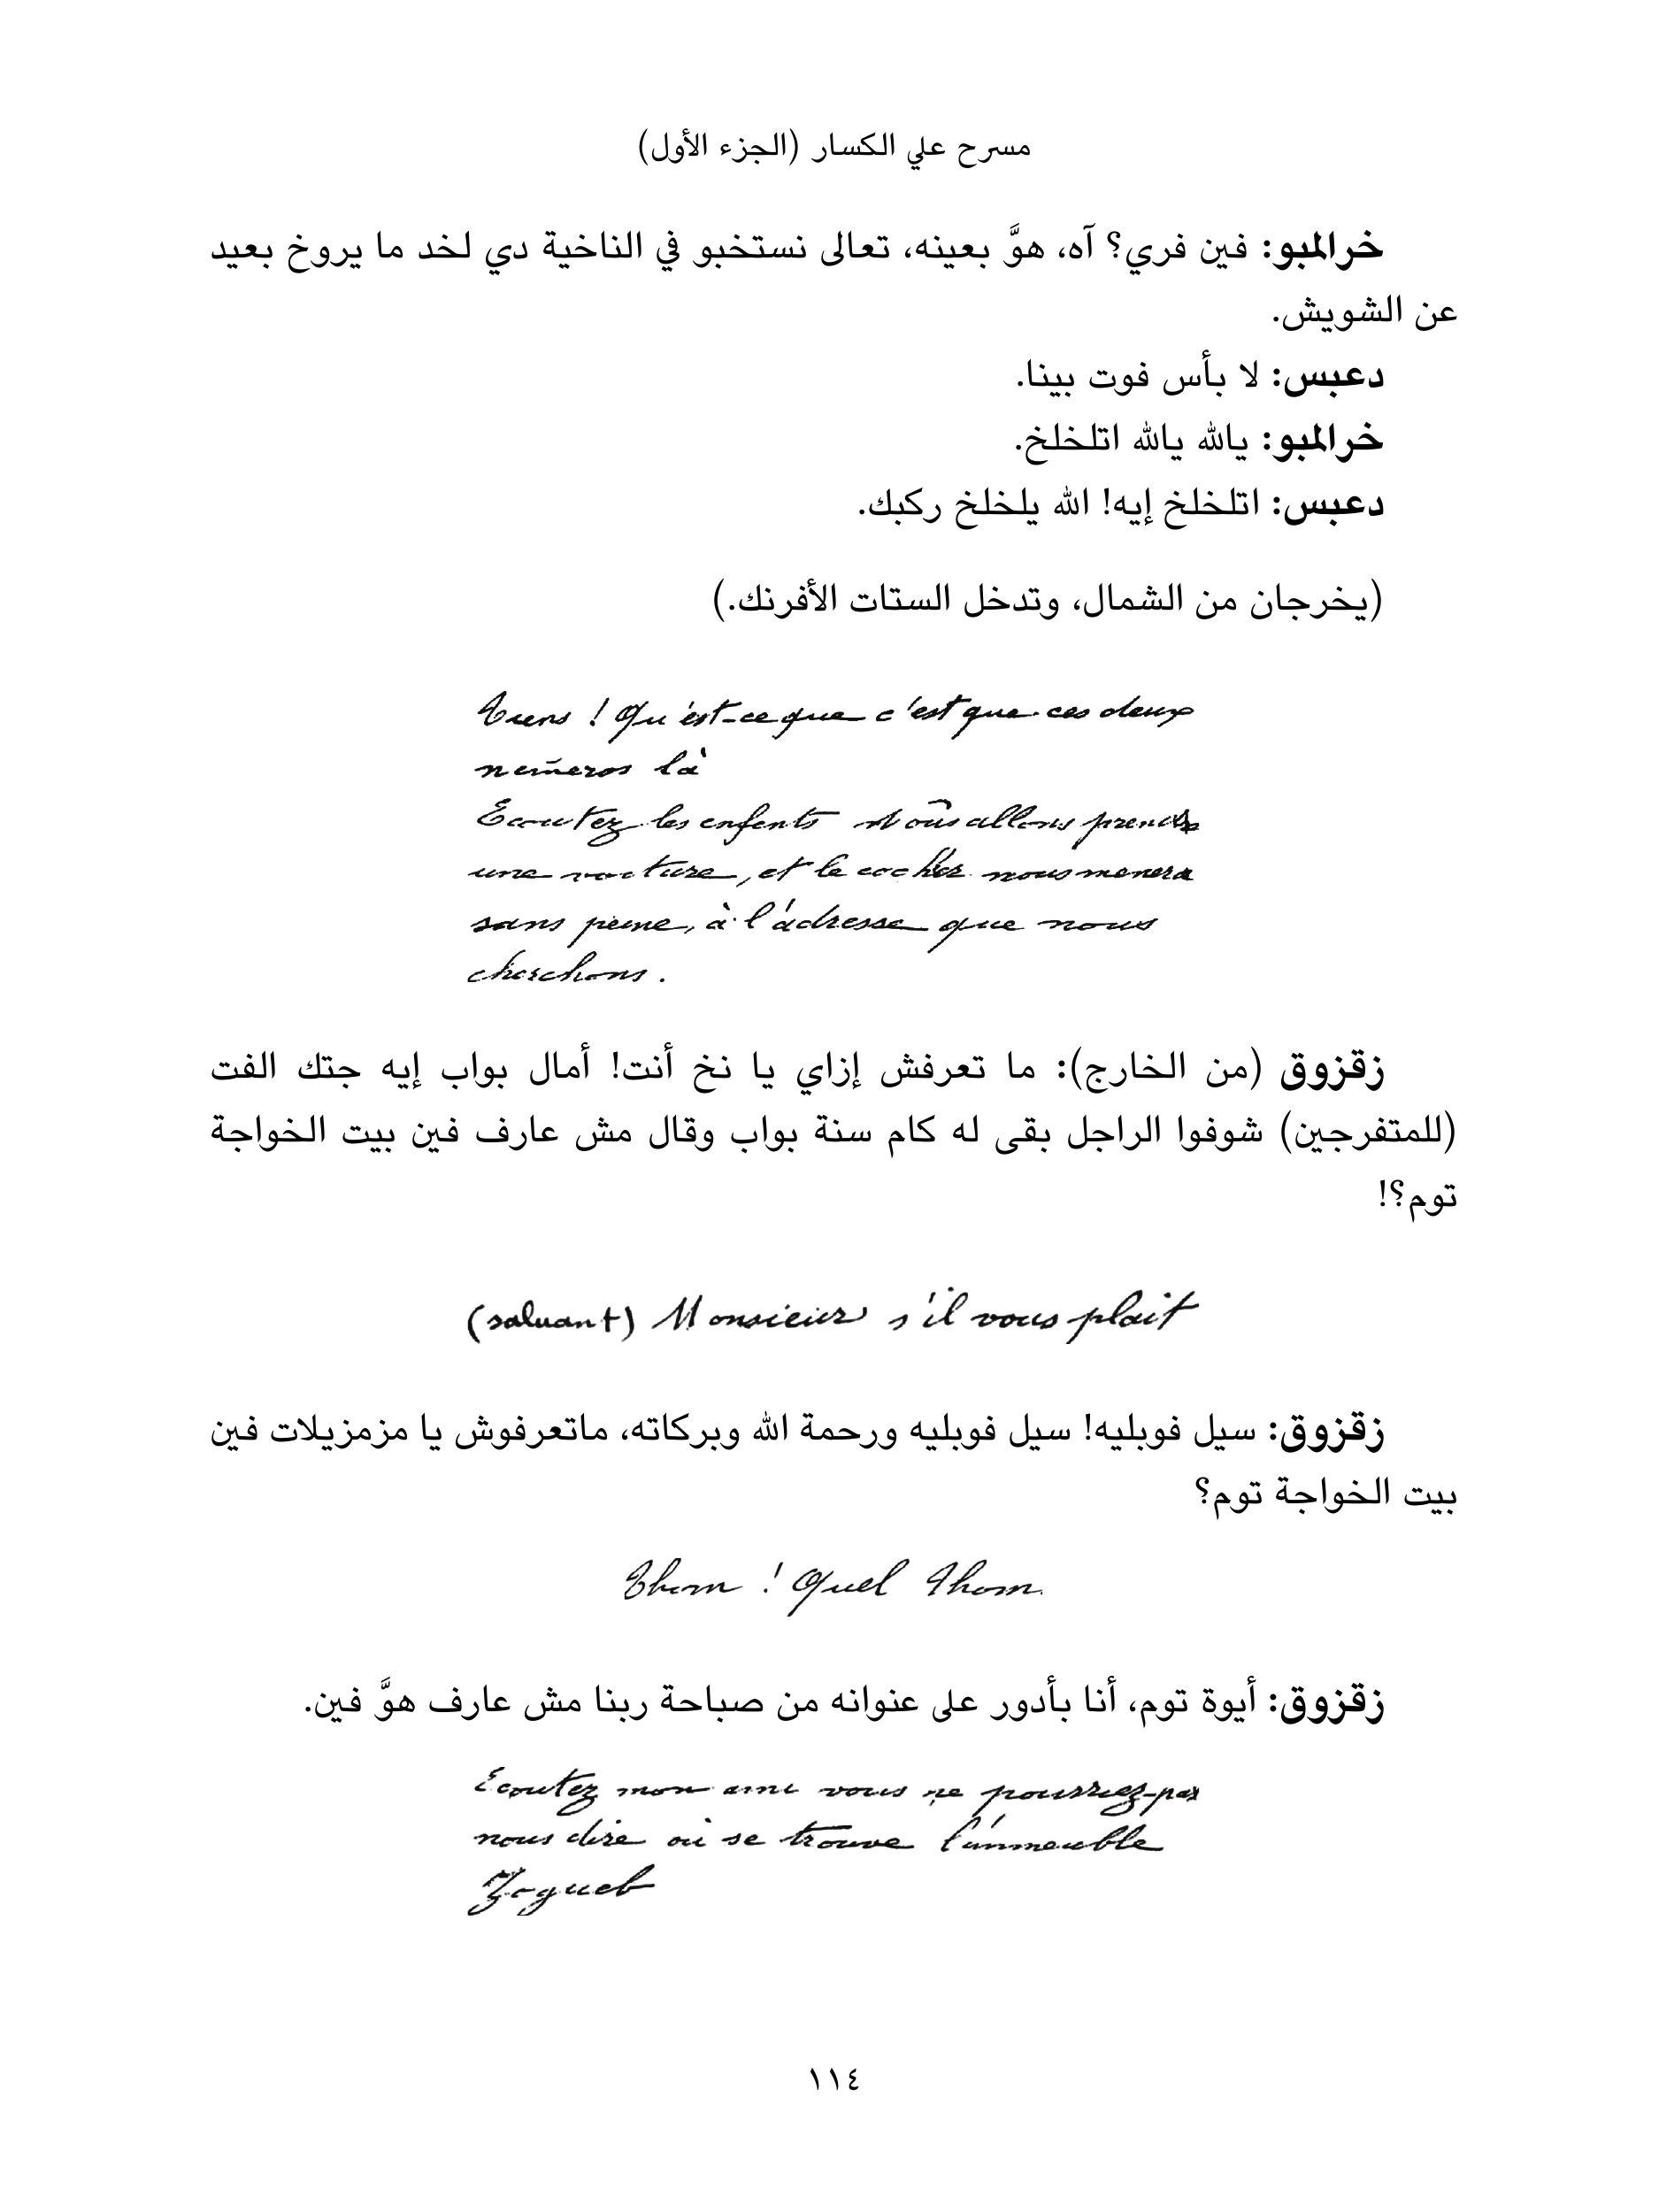 مسرح علي الكسار (الجزء الأول)
خرالمبو: فين فري؟ آه، هوَّ بعينه، تعالى نستخبو في الناخية دي لخد ما يروخ بعيد
عن الشويش.
دعبس: لا بأس فوت بينا.
خرالمبو: يالله يالله اتلخلخ.
دعبس: اتلخلخ إيه! الله يلخلخ ركبك.
(يخرجان من الشمال، وتدخل الستات الأفرنك.)
Tiens ! Qu'est-ce que c'est que ces deux
numeros là
Ecoutez les enfents Nous allons prendre
une voiture, et le cocher nous menera
sans peine, à l'adresse que nous
cherchons.
زقزوق (من الخارج): ما تعرفش إزاي يا نخ أنت! أمال بواب إيه جتك الفت
(للمتفرجين) شوفوا الراجل بقى له كام سنة بواب وقال مش عارف فين بيت الخواجة
توم؟!
(saluant) Monsieur s'il vous plait
زقزوق: سيل فوبليه! سيل فوبليه ورحمة الله وبركاته، ماتعرفوش يا مزمزيلات فين
بيت الخواجة توم؟
Thom ! Quel Thom.
زقزوق: أيوة توم، أنا بأدور على عنوانه من صباحة ربنا مش عارف هوَّ فين.
Ecoutez mon ami vous ne pourriez-pas
nous dire où se trouve l'immeuble
Zogueb
١١٤